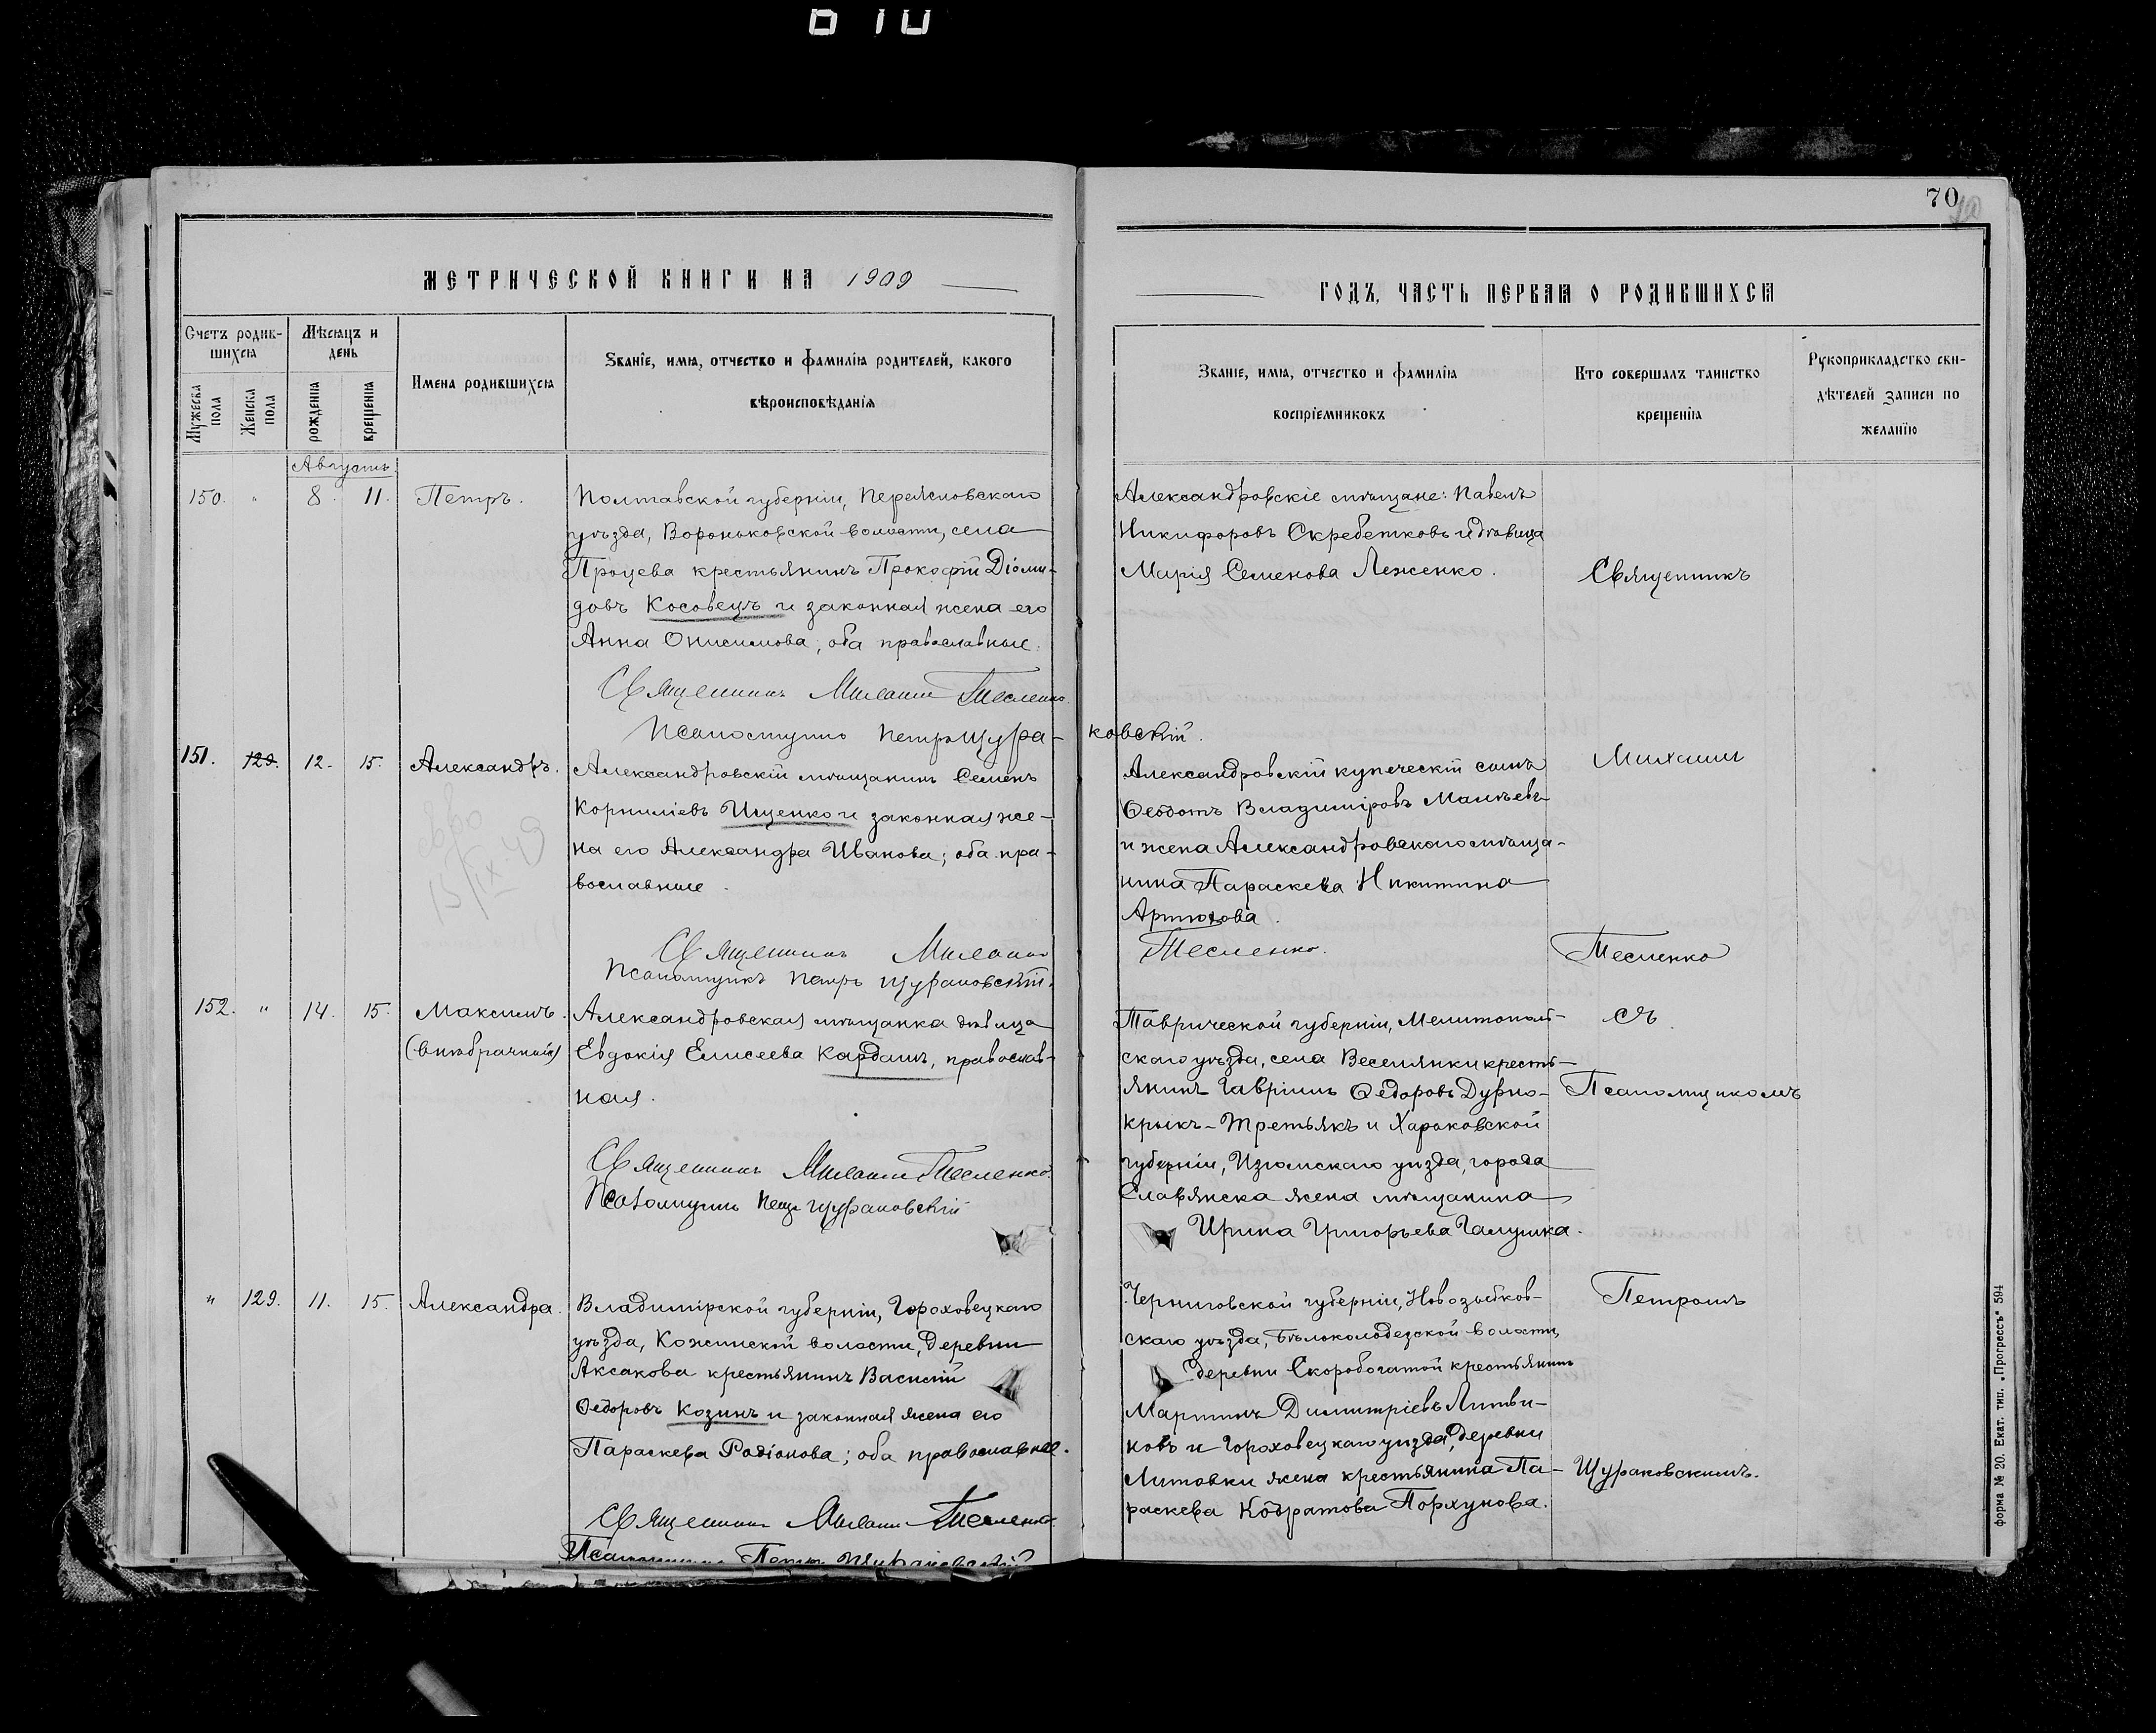 70
МЕТРИЧЕСКОЙ КНИГИ НА 1909
ГОДЪ, ЧАСТЬ ПЕРВАЯ О РОДИВШИХСЯ
Счетъ родив-
шихся
Мужеска пола
Женска пола
Мѣсяцъ и
день
рожденія
крещенія
Имена родившихся
Званіе, имя, отчество и фамилія родителей, какого
вѣроисповѣданія
Званіе, имя, отчество и фамилія
воспріемниковъ
Кто совершалъ таинство
крещенія
Рукоприкладство сви-
дѣтелей записи по
желанію
Августъ.
150. " 8. 11. Петръ.
Полтавской губерніи, Переяслoвскаго
уѣзда, Вороньковской волости, села
Процева крестьянинъ Прокофій Діоми-
довъ Косовецъ и законная жена его
Анна Онисимова; оба православные.
Священникъ Михаилъ Тесленко.
Псаломщикъ Петръ Щура-
ковскій.
Александровскіе мѣщане: Павелъ
Никифоровъ Скребетковъ и дѣвица
Марія Семенова Леженко.
Священникъ
151. 129. 12. 15. Александръ.
15/IX 49
Александровскій мѣщанинъ Семенъ
Корниліевъ Ищенко и законная же-
на его Александра Иванова; оба пра-
вославные.
Священникъ Михаилъ
Тесленко.
Псаломщикъ Петръ Щураковскій.
Александровскій купеческій сынъ
Ѳеодотъ Владиміровъ Малѣевъ
и жена Александровскаго мѣща-
нина Параскева Никитина
Артюхова.
Михаилъ
Тесленко
152. " 14. 15. Максимъ.
(внѣбрачный)
Александровская мѣщанка дѣвица
Евдокія Елисеева Кардашъ, православ-
ная.
Священникъ Михаилъ Тесленко.
Псаломщикъ Петръ Щураковскій
Таврической губерніи, Мелитополь-
скаго уѣзда, села Веселянки кресть-
янинъ Гавріилъ Ѳедоровъ Дурно-
крыкъ-Третьякъ и Харьковской
губерніи, Изюмскаго уѣзда, города
Славянска жена мѣщанина
Ирина Григорьева Галушка.
съ
Псаломщикомъ
" 129. 11. 15. Александра.
Владимірской губерніи, Гороховецкаго
уѣзда, Кожинской волости, деревни
Аксакова крестьянинъ Василій
Ѳедоровъ Козинъ и законная жена его
Параскева Родіонова; оба православные.
Священникъ Михаилъ Тесленко.
Псаломщикъ Петръ Щураковскій
Черниговской губерніи, Новозыбков-
скаго уѣзда, Бѣлоколодезской волости,
деревни Скоробогатой крестьянинъ
Мартинъ Димитріевъ Литви-
новъ и Гороховецкаго уѣзда, деревни
Литовки жена крестьянина Па-
раскева Кодратова Порхунова.
Петромъ
Щураковскимъ.
форма № 20. Екат. тип. „Прогрессъ" 594